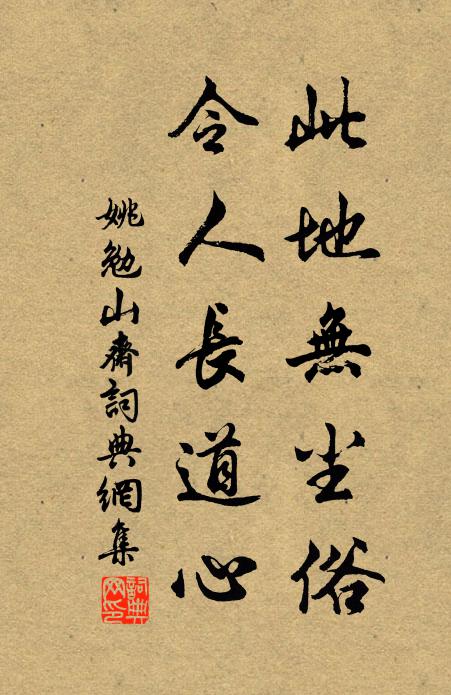 此地無尘俗
令人長道心
姚勉山齋詞典網集
詞典網印